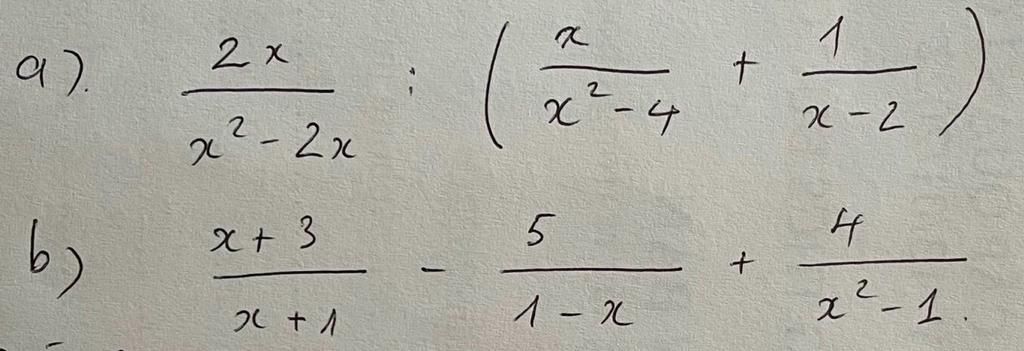 a). \frac{2x}{x^2-2x} : \left( \frac{x}{x^2-4} + \frac{1}{x-2} \right)
b) \frac{x+3}{x+1} - \frac{5}{1-x} + \frac{4}{x^2-1}.